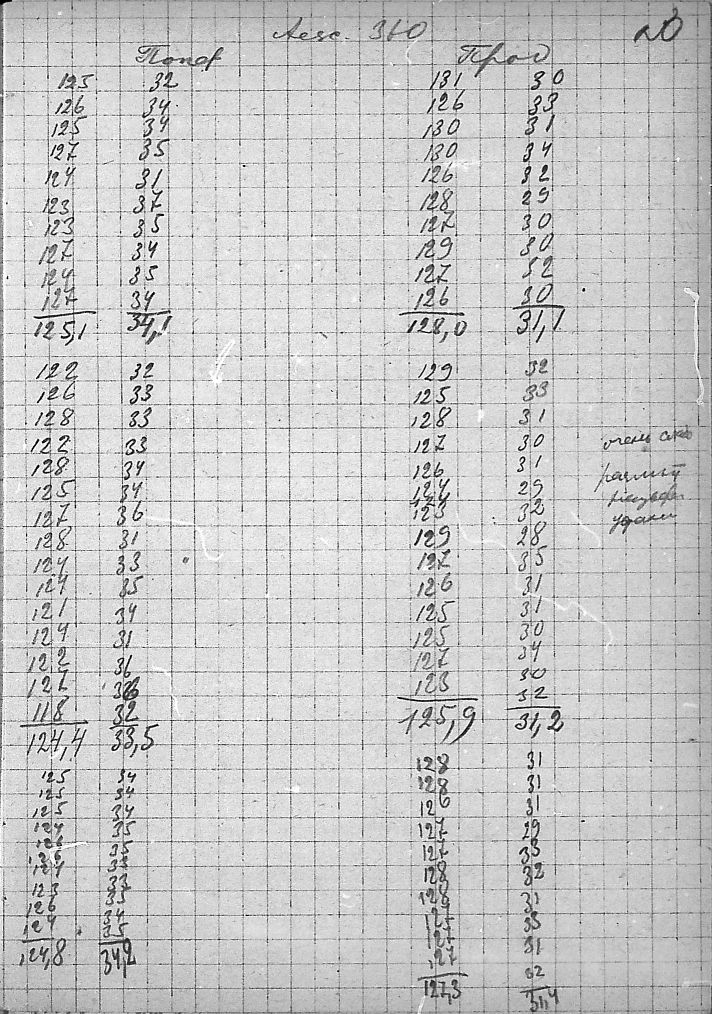 Aesc. 360
20
Попер Прод
125 32 131 30
126 34 126 33
125 34 130 31
127 35 130 34
124 31 126 32
123 37 128 29
123 35 127 30
127 34 129 30
124 35 127 32
127 34 126 30
125,1 34,1 128,0 31,1
122 32 129 32
126 33 125 33
128 33 128 31
122 33 127 30
очень
128 34 126 31
125 34 124 29
127 36 123 32
128 31 129 28
124 33 127 35
124 35 126 31
121 34 125 31
124 31 125 30
122 36 127 34
121 123 30
118 32 32
124,4 33,5 125,9 31,2
125 34 128 31
125 34 128 31
125 34 126 31
124 35 127 29
35 127 33
124 128 32
123 128 31
126 34 127 33
124 35 127 31
127 32
124,8 34,2 127,3 31,4